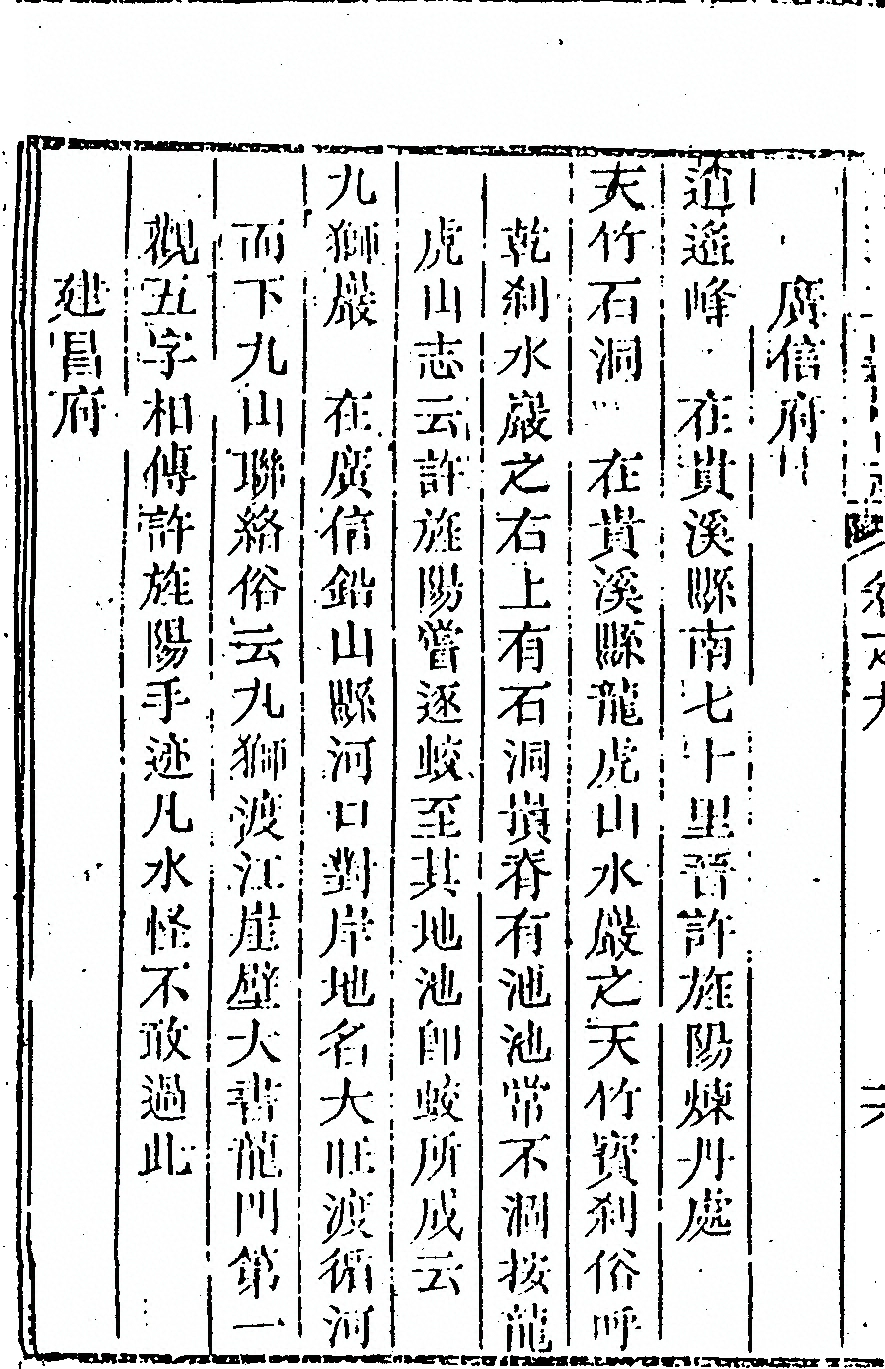 廣信府
逍遙峰　在貴溪縣南七十里晉許旌陽煉丹處
天竹石洞　在貴溪縣龍虎山水巖之天竹寶剎俗呼
乾剎水巖之右上有石洞墳脊有池池常不涸按龍
虎山志云許旌陽嘗逐蛟至其地池卽蛟所成云
九獅巖　在廣信鉛山縣河口對岸地名大旺渡循河
而下九山聯絡俗云九獅渡江崖壁大書龍門第一
觀五字相傳許旌陽手迹凡水怪不敢過此
建昌府